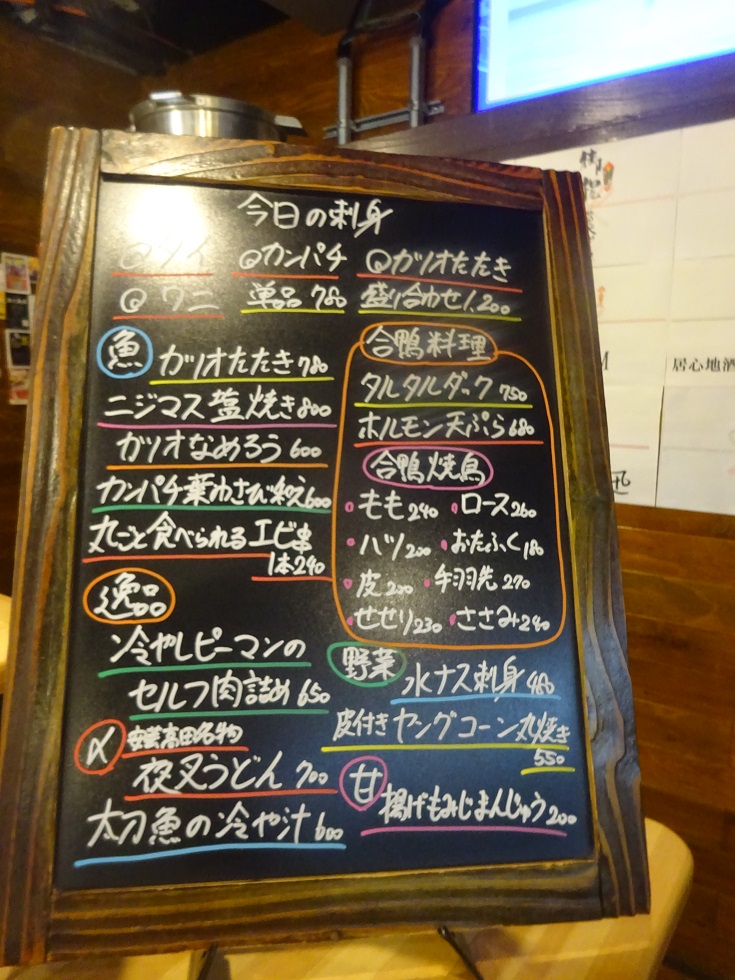 今日の刺身
@ソイ @カンパチ @ガツオたたき
@ワニ 単品780 盛り合わせ1,200
魚 ガツオたたき780
ニジマス塩焼き800
ガツオなめろう600
カンパチ葉わさび和え600
丸ごと食べられるエビ串
1本240
逸品
冷やしピーマンの
セルフ肉詰め650
〆 安芸高田名物
夜叉うどん700
太刀魚の冷や汁600
合鴨料理
タルタルダック750
ホルモン天ぷら680
合鴨焼鳥
もも240 ロース260
ハツ200 おたふく180
皮200 手羽先270
せせり230 ささみ240
野菜
水ナス刺身480
皮付きヤングコーン丸焼き
550
甘 揚げもみじまんじゅう200
居心地酒